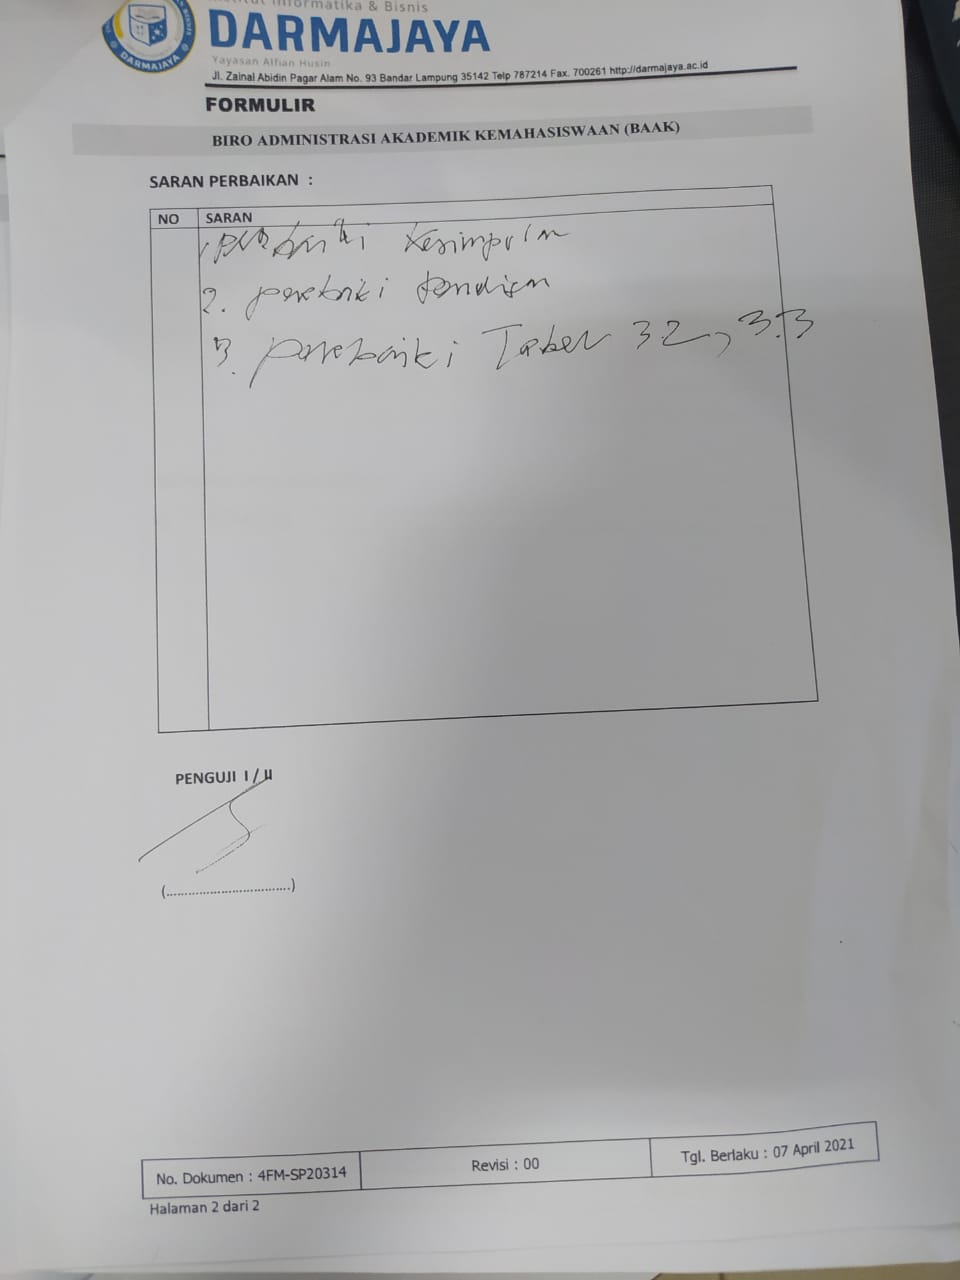 Institut Informatika & Bisnis
DARMAJAYA
Yayasan Alfian Husin
Jl. Zainal Abidin Pagar Alam No. 93 Bandar Lampung 35142 Telp 787214 Fax. 700261 http://darmajaya.ac.id
FORMULIR
BIRO ADMINISTRASI AKADEMIK KEMAHASISWAAN (BAAK)
SARAN PERBAIKAN :
NO SARAN
1. perbaiki kesimpulan
2. perbaiki
3. perbaiki Tabel 3.2, 3.3
PENGUJI I / II
(................................)
No. Dokumen : 4FM-SP20314 Revisi : 00 Tgl. Berlaku : 07 April 2021
Halaman 2 dari 2
DARMAJAYA